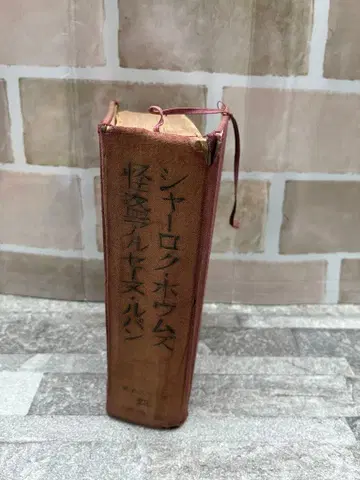 シャーロク・ホウムズ
怪盗アルセーヌ・ルパン